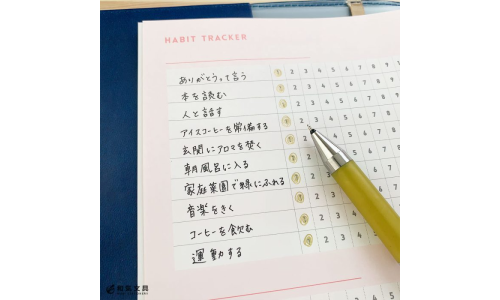 HABIT TRACKER
ありがとうって言う 1 2 3 4 5 6 7 8 9
本を読む 1 2 3 4 5 6 7 8 9
人と話す 1 2 3 4 5 6 7 8 9
アイスコーヒーを常備する 1 2 3 4 5 6 7 8
玄関にアロマを焚く 1 2 4 5 6 7 8
朝風呂に入る 1 2 5 6 7 8
家庭菜園で緑にふれる 1 2 5 6 7 8
音楽をきく 1 2 3 6 7 8
コーヒーを飲む 1 2 3 4 7 8
運動する 1 2 3 4 5
和気文具